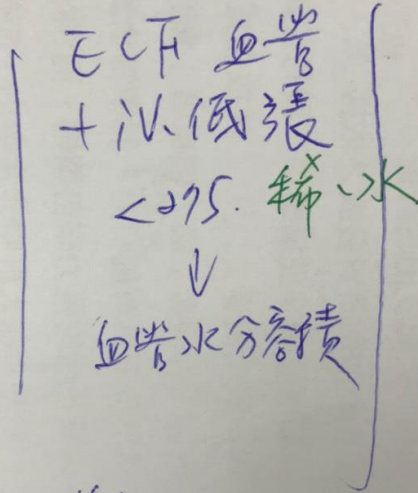 ECF 血管
+ iV、低張
<275. 稀、水
↓
血管水分容積